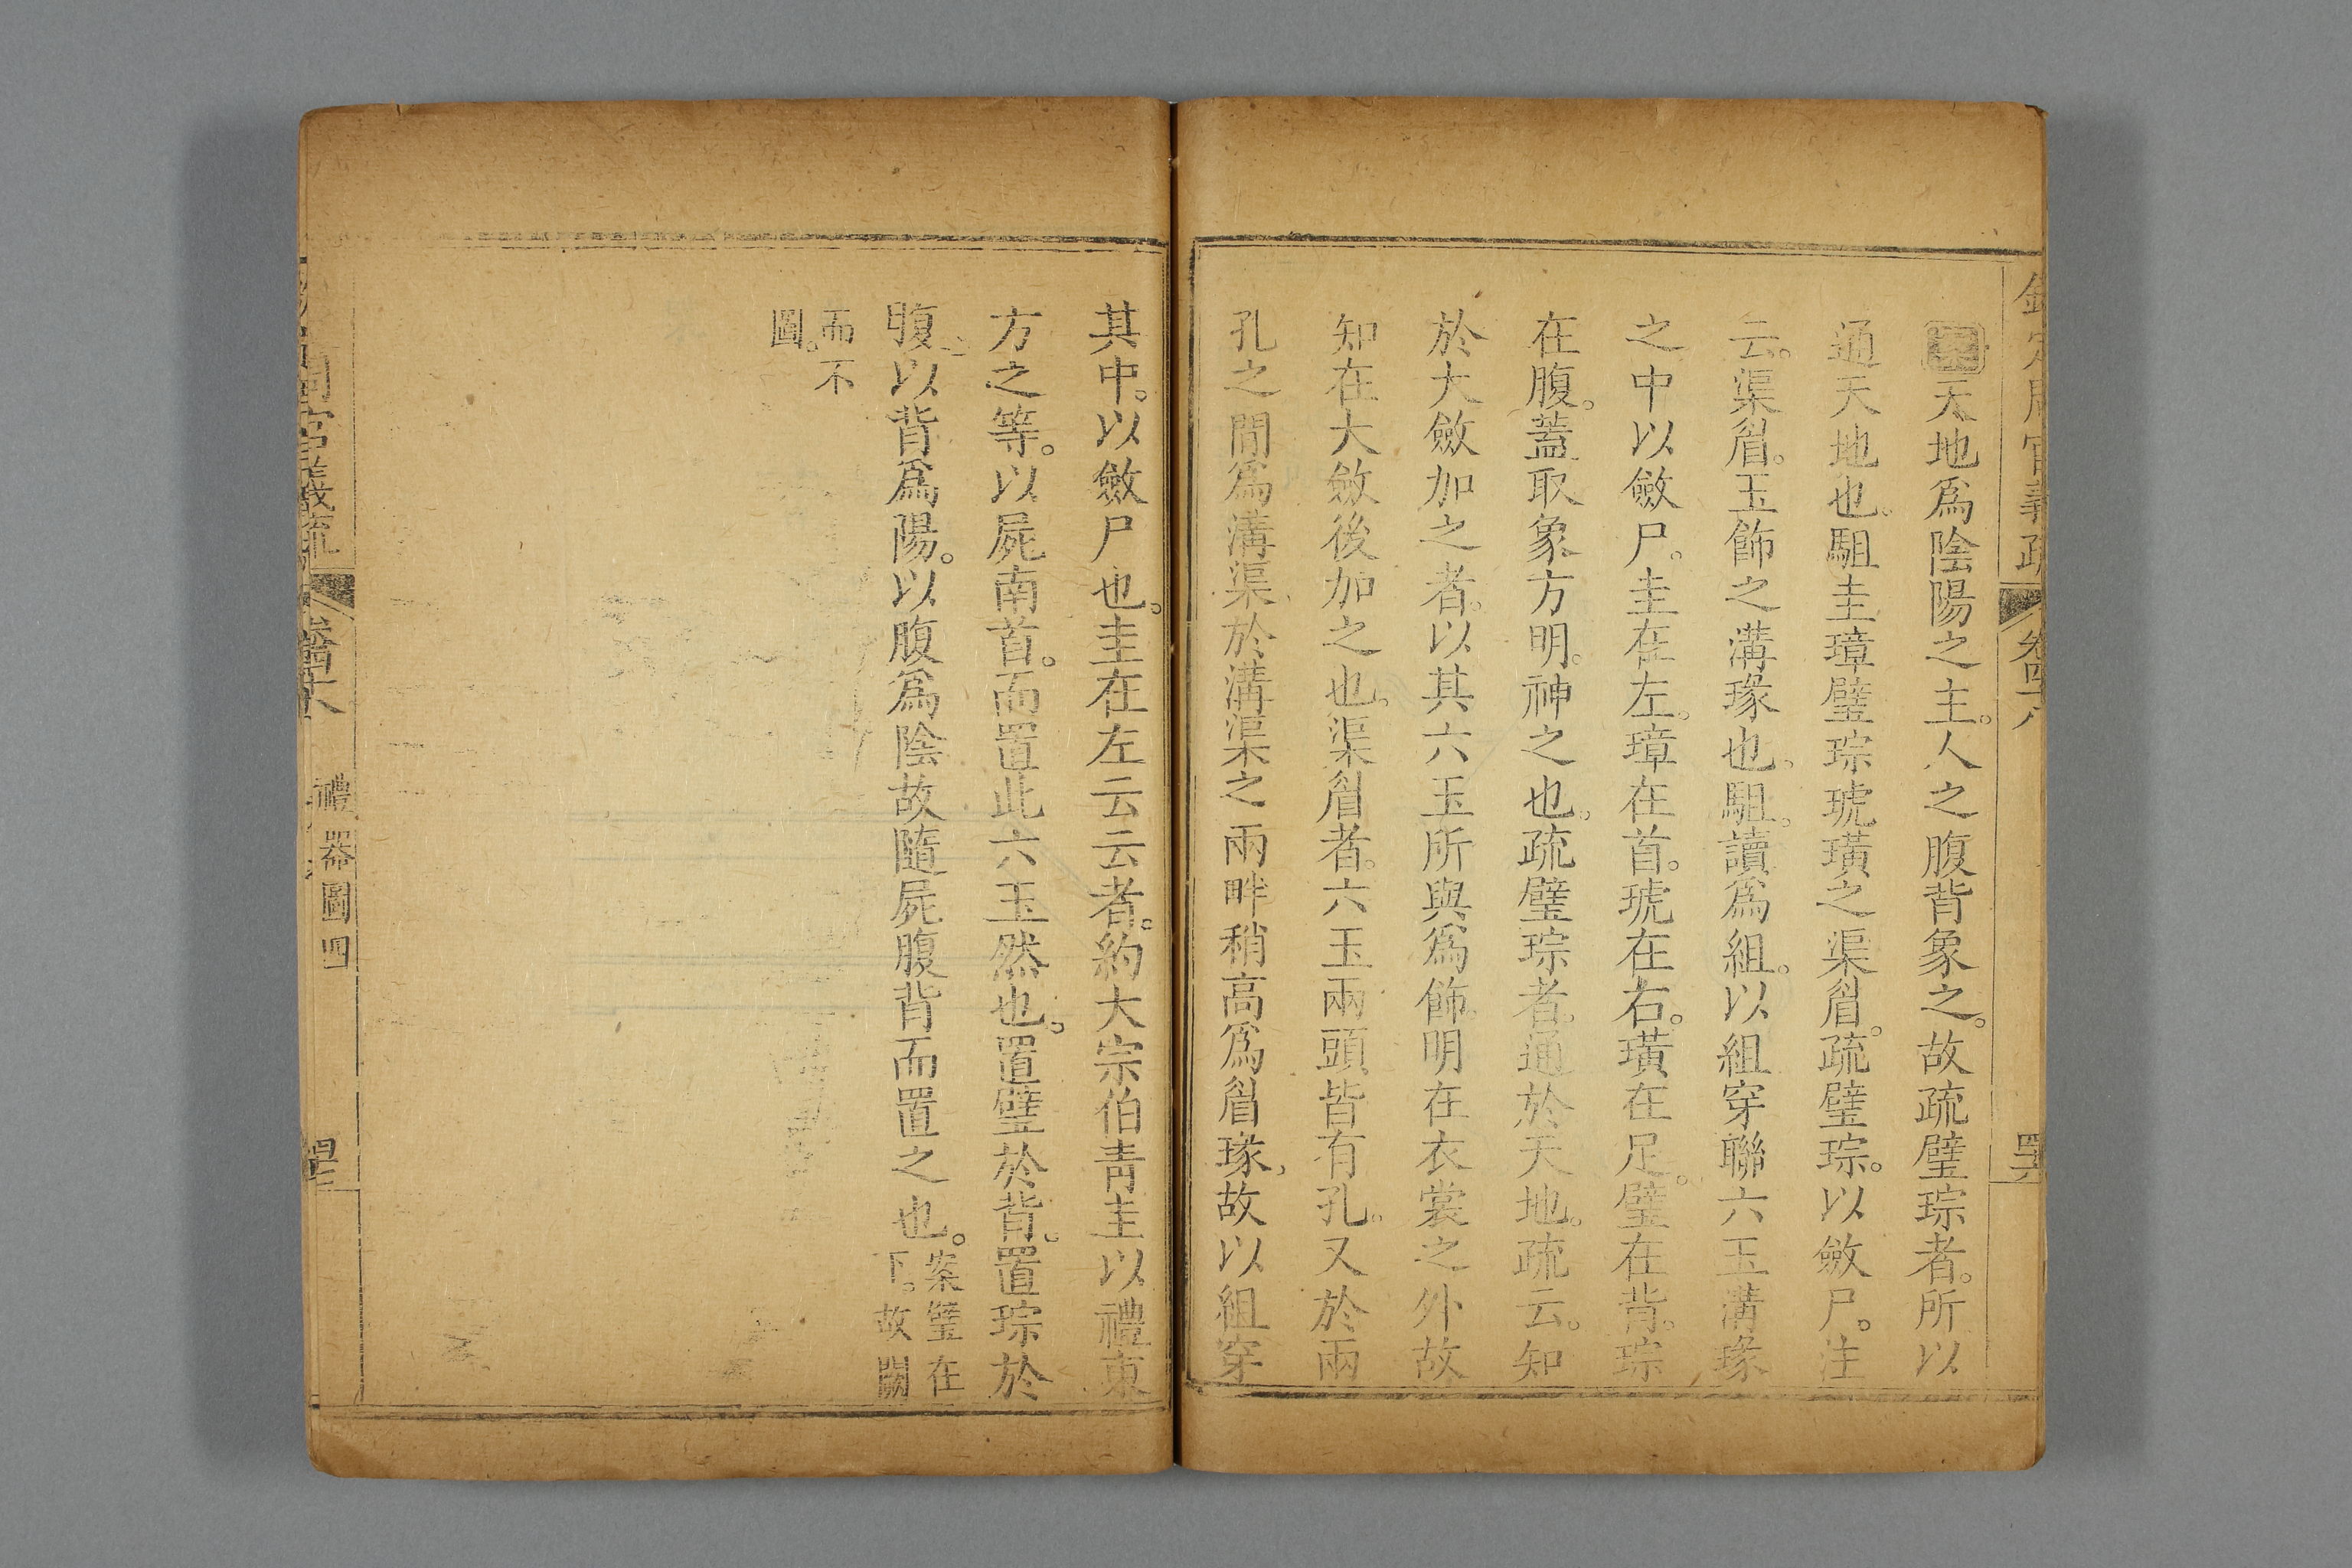 欽定周官義疏 卷四十八
天地爲陰陽之主。人之腹背象之。故疏璧琮者。所以
通天地也。駔圭璋璧琮琥璜之渠眉。疏璧琮。以斂尸。注
云。渠眉。玉飾之溝瑑也。駔。讀爲組。以組穿聯六玉溝瑑
之中以斂尸。圭在左。璋在首。琥在右。璜在足。璧在背。琮
在腹。蓋取象方明。神之也。疏璧琮者。通於天地。疏云。知
於大斂加之者。以其六玉所與爲飾。明在衣裳之外故
知在大斂後加之也。渠眉者。六玉兩頭皆有孔。又於兩
孔之間爲溝渠於溝渠之兩畔稍高爲眉瑑。故以組穿
其中。以斂尸也。圭在左云云者。約大宗伯青圭以禮東
方之等。以屍南首。而置此六玉然也。置璧於背。置琮於
腹。以背爲陽。以腹爲陰故隨屍腹背而置之也。案璧在
下。故闕
而不
圖。
禮器圖四